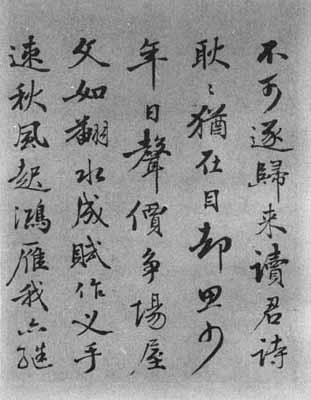 不可逐歸来讀君詩
耿〻猶在目却思少
年日聲價争場屋
文如翻水成賦作叉手
速秋風起鴻雁我亦継